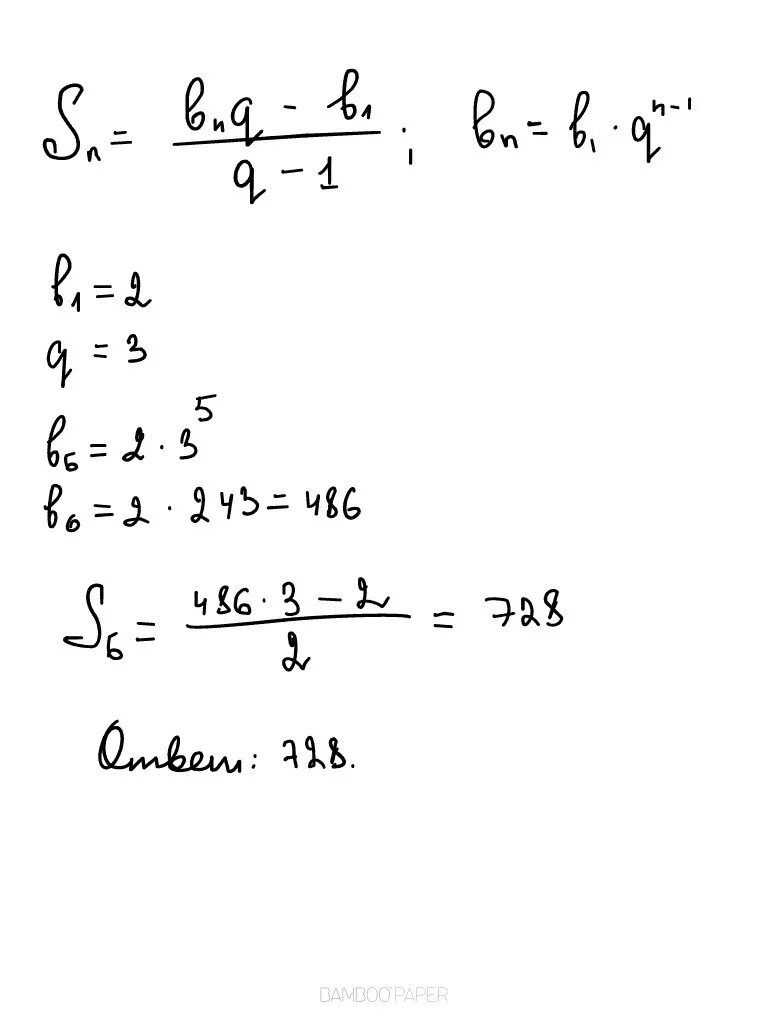 Sₙ = (bₙq - b₁)/(q - 1) ; bₙ = b₁ · qⁿ⁻¹
b₁ = 2
q = 3
b₆ = 2 · 3⁵
b₆ = 2 · 243 = 486
S₆ = (486 · 3 - 2)/2 = 728
Ответ: 728.
BAMBOO PAPER